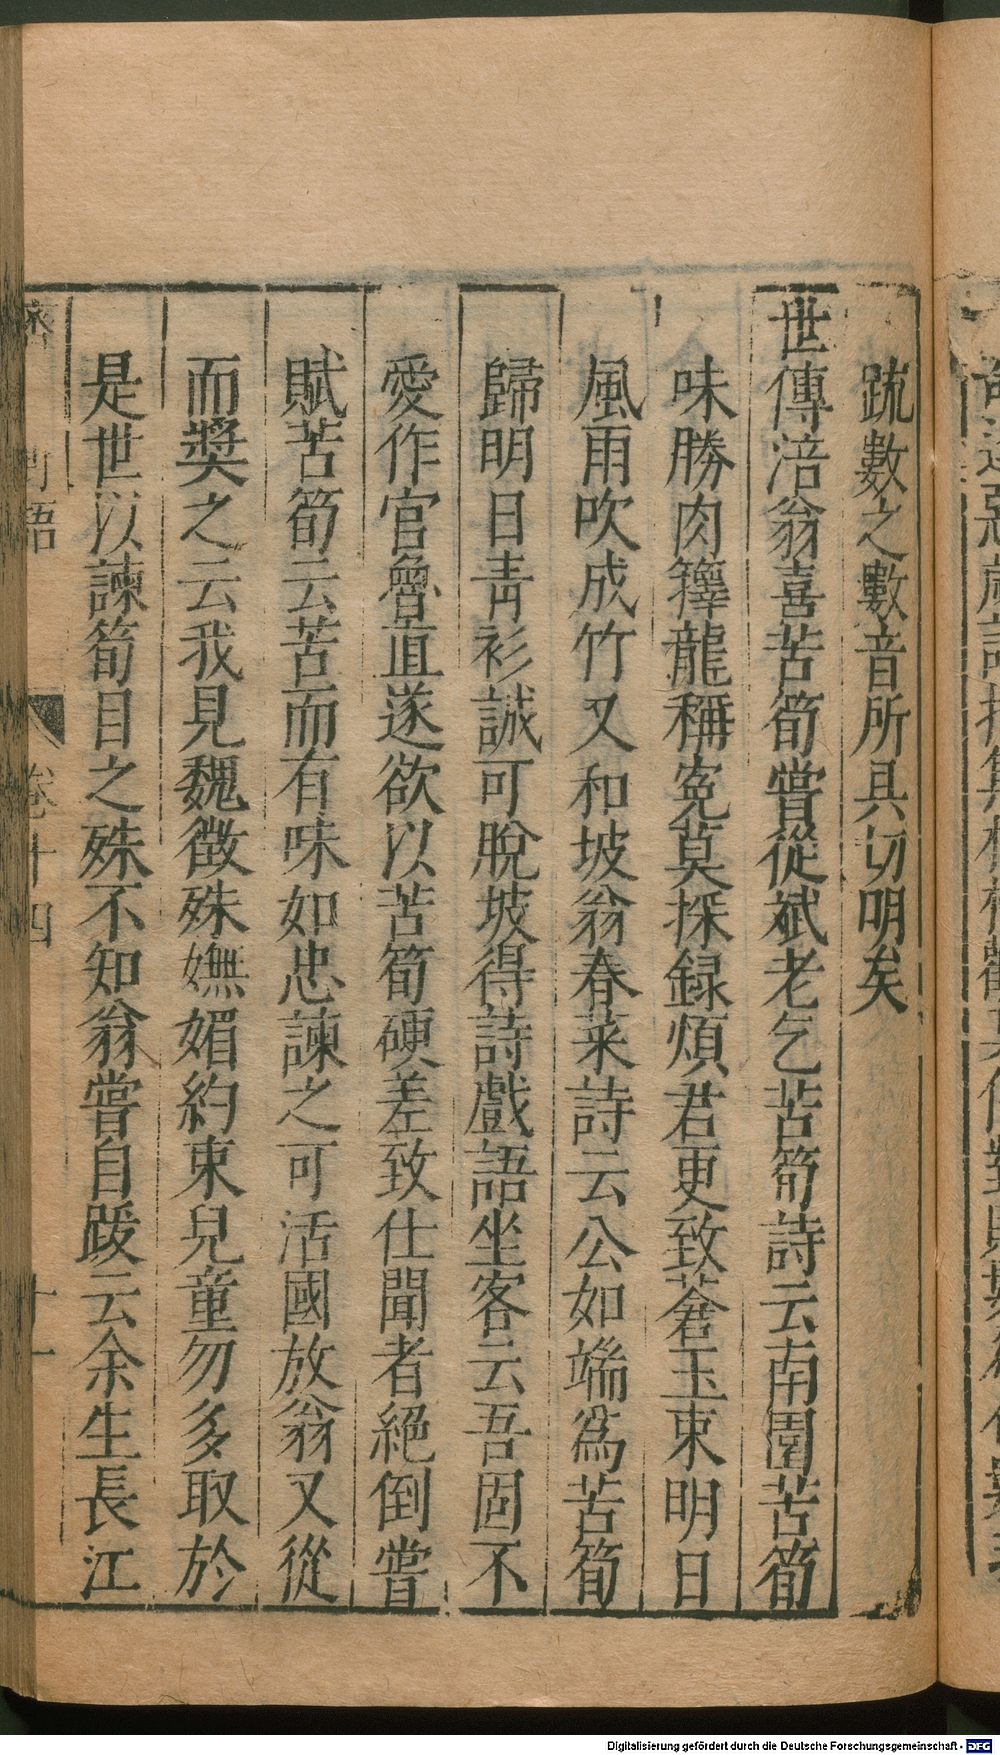 䟽數之數音所具切明矣
世傳涪翁喜苦筍嘗從斌老乞苦筍詩云南園苦筍
味勝肉籜龍稱冤莫採録煩君更致蒼玉束明日
風雨吹成竹又和坡翁春菜詩云公如端為苦筍
歸明日青衫誠可脫坡得詩戲語坐客云吾固不
愛作官魯直遂欲以苦筍硬差致仕聞者絕倒嘗
賦苦筍云苦而有味如忠諫之可活國放翁又從
而獎之云我見魏徵殊嫵媚約束兒童勿多取於
是世以諫筍目之殊不知翁嘗自跋云余生長江
卷十四
十一
Digitalisierung gefördert durch die Deutsche Forschungsgemeinschaft - DFG